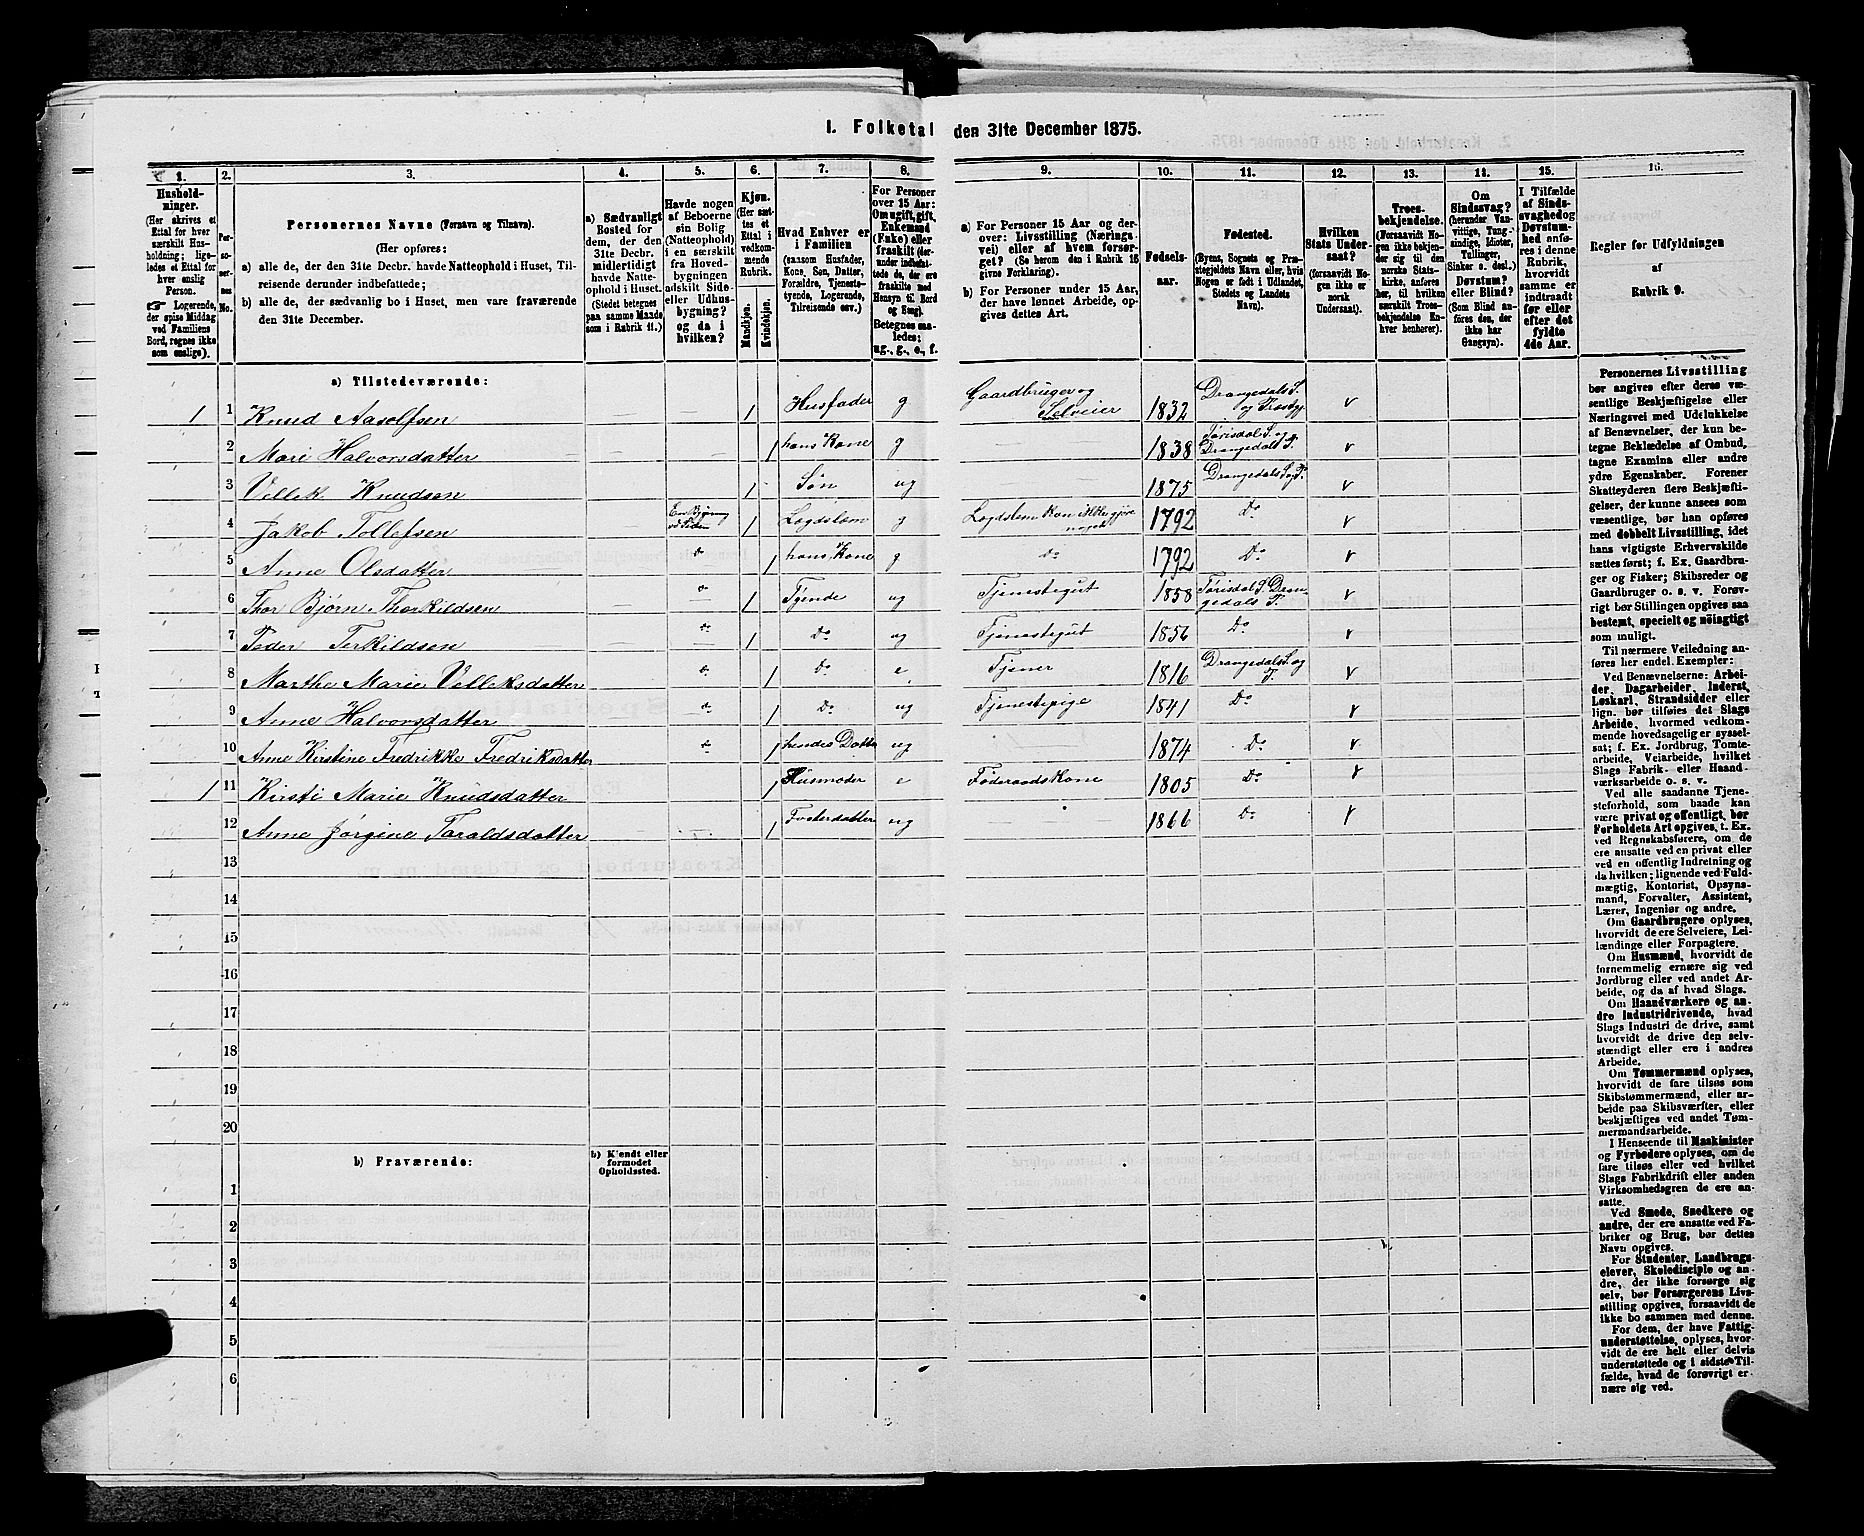 I. Folketal den 31te December 1875.
1. 2. 3. 4. 5. 6. 7. 8. 9. 10. 11. 12. 13. 14. 15. 16.
Husholdninger.
(Her skrives et
Ettal for hver
særskilt Husholdning; ligeledes
et Ettal for
hver enslig
Person.
☞ Logerende,
der spise Middag
ved Familiens
Bord, regnes ikke
som enslige).
Personernes No.
Personernes Navne (Fornavn og Tilnavn).
(Her opføres:
a) alle de, der den 31te Decbr. havde Natteophold i Huset, Tilreisende derunder indbefattede;
b) alle de, der sædvanlig bo i Huset, men vare fraværende
den 31te December.
a) Sædvanligt
Bosted for
dem, der den
31te Decbr.
midlertidigt
havde Natteophold i Huset.
(Stedet betegnes
paa samme Maade
som i Rubrik 11.)
Havde nogen
af Beboerne
sin Bolig
(Natteophold)
i en særskilt
fra Hovedbygningen
adskilt Side-
eller Udhusbygning?
og da i
hvilken?
Kjøn.
(Her sættes et
Ettal i
vedkommende
Rubrik.
Mandkjøn.
Kvindekjøn.
Hvad Enhver er
i Familien
(saasom Husfader,
Kone, Søn, Datter,
Forældre, Tjenestetyende, Logerende,
Tilreisende osv.)
For Personer
over 15 Aar:
Om ugift, gift,
Enkemand
(Enke) eller
fraskilt (derunder indbefattede de, der ere
fraskilte med
Hensyn til Bord
og Seng).
Betegnes saaledes:
ug., g., e., f.
a) For Personer 15 Aar og derover: Livsstilling (Næringsvei) eller af hvem forsørget? (Se herom den i Rubrik 16
givne Forklaring).
b) For Personer under 15 Aar,
der have lønnet Arbeide, opgives dettes Art.
Fødselsaar.
Fødested.
(Byens, Sognets og Præstegjeldets Navn eller, hvis
Nogen er født i Udlandet,
Stedets og Landets
Navn).
Hvilken
Stats Undersaat?
(forsaavidt Nogen ikke er
norsk
Undersaat).
Troesbekjendelse.
(Forsaavidt Nogen ikke bekjender sig til den
norske Statskirke, anføres her, til hvilken
særskilt Troesbekjendelse Enhver henhører).
Om
Sindssvag?
(herunder Vanvittige, Tungsindige, Idioter,
Tullinger,
Sinker o. desl.)
Døvstum?
eller Blind?
(Som Blind anføres den, der
ikke har
Gangsyn).
I Tilfælde
af Sindssvaghed og
Døvstumhed anføres i denne
Rubrik,
hvorvidt
samme er
indtraadt
før eller
efter det
fyldte
4de Aar.
Regler for Udfyldningen
af
Rubrik 9.
a) Tilstedeværende:
1 1 Knud Aasolfsen 1 Husfader g Gaardbruger og Selveier 1832 Drangedals S. og Præstgj.
2 Mari Halvorsdatter 1 hans Kone g 1838 Tørisdal S. og Drangedals P.
3 Vellek Knudsen 1 Søn ug 1875 Drangedals S. og P.
4 Jakob Tollefsen 1 Lægdslem g Lægdslem kan ikke gjøre noget 1792 Do
5 Anne Olsdatter do 1 hans Kone g do 1792 Do
6 Thor Bjørn Thorkildsen do 1 Tyende ug Tjenestegut 1858 Tørisdal S. Drangedals P.
7 Peder Terkildsen do 1 Do ug Tjenestegut 1856 Do
8 Marthe Marie Velleksdatter do 1 Do e Tjener 1816 Drangedals S. og P.
9 Anne Halvorsdatter do 1 Do ug Tjenestepige 1841 Do
10 Anne Kirstine Fredrikke Fredriksdatter do 1 hendes Datter ug 1874 Do
1 11 Kirsti Marie Knudsdatter 1 Husmoder e Føderaadskone 1805 Do
12 Anne Jørgine Taraldsdatter 1 Fosterdatter ug 1866 Do
13
14
15
16
17
18
19
20
b) Fraværende:
b) Kjendt eller
formodet
Opholdssted.
1
2
3
4
5
6
Personernes Livsstilling
bør angives efter deres væsentlige Beskjæftigelse eller
Næringsvei med Udelukkelse
af Benævnelser, der kun betegne Beklædelse af Ombud,
tagne Examina eller andre
ydre Egenskaber. Forener
Skatteyderen flere Beskjæftigelser, der kunne ansees som
væsentlige, bør han opføres
med dobbelt Livsstilling, idet
hans vigtigste Erhvervskilde
sættes først; f. Ex. Gaardbruger og Fisker; Skibsreder og
Gaardbruger o. s. v. Forøvrigt bør Stillingen opgives saa
bestemt, specielt og nöiagtigt
som muligt.
Til nærmere Veiledning anføres her endel Exempler:
Ved Benævnelserne: Arbeider, Dagarbeider, Inderst,
Løskarl, Strandsidder eller
lign. bør tilføies det Slags
Arbeide, hvormed vedkommende hovedsagelig er sysselsat; f. Ex. Jordbrug, Tomtearbeide, Veiarbeide, hvilket
Slags Fabrik- eller Haandværksarbeide o. s. v.
Ved alle saadanne Tjenesteforhold, som baade kan
være privat og offentligt, bør
Forholdets Art opgives, t. Ex.
ved Regnskabsførere, om de
ere ansatte ved en privat eller
ved en offentlig Indretning og
da hvilken; lignende ved Fuldmægtig, Kontorist, Opsynsmand, Forvalter, Assistent,
Lærer, Ingeniør og andre.
Om Gaardbrugere oplyses,
hvorvidt de ere Selveiere, Leilændinge eller Forpagtere.
Om Husmænd, hvorvidt de
fornemmelig ernære sig ved
Jordbrug eller ved andet Arbeide, og da af hvad Slags.
Om Haandværkere og andre Industridrivende, hvad
Slags Industri de drive, samt
hvorvidt de drive den selvstændigt eller ere i andres
Arbeide.
Om Tømmermænd oplyses,
hvorvidt de fare tilsøs som
Skibstømmermænd, eller arbeide paa Skibsværfter, eller
beskjæftiges ved andet Tømmermandsarbeide.
I Henseende til Maskinister
og Fyrbødere oplyses, om de
fare tilsøs eller ved hvilket
Slags Fabrikdrift eller anden
Virksomhedsgren de ere ansatte.
Ved Smede, Snedkere og
andre, der ere ansatte ved Fabriker og Brug, bør dettes
Navn opgives.
For Studenter, Landbrugselever, Skoledisciple og andre, der ikke forsørge sig
selv, bør Forsørgerens Livsstilling opgives, forsaavidt de
ikke bo sammen med denne.
For dem, der have Fattigunderstøttelse, oplyses, hvorvidt de ere helt eller delvis
understøttede og i sidste Tilfælde, hvad de forøvrigt ernære sig ved.